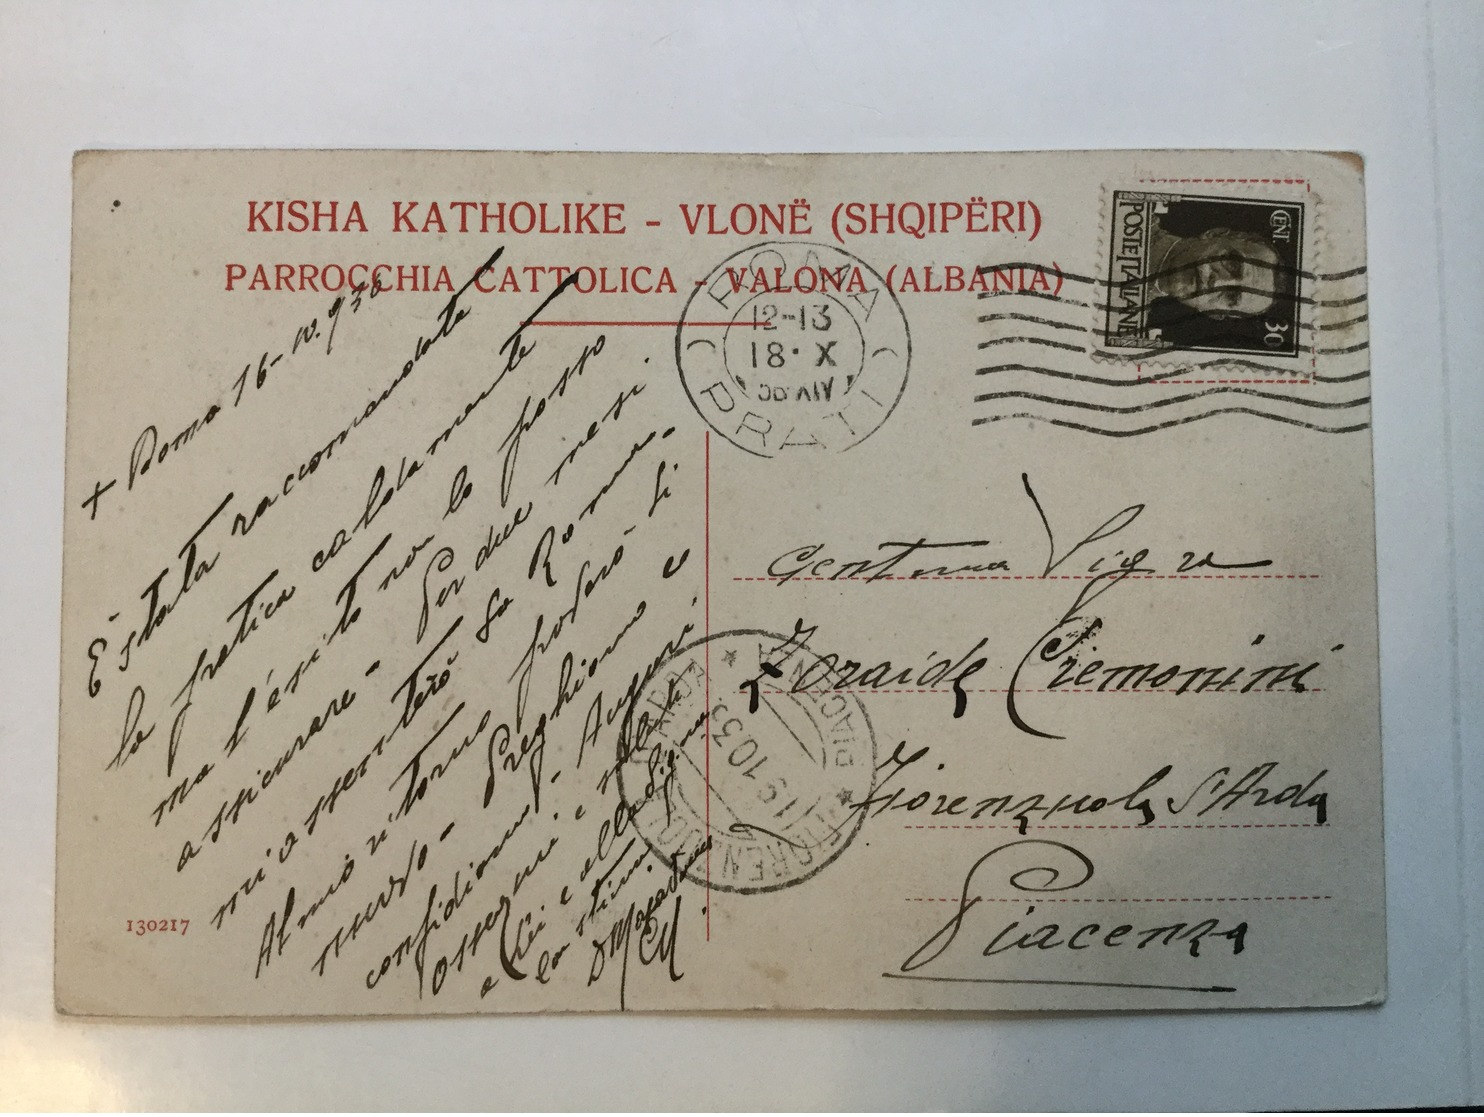 KISHA KATHOLIKE - VLONË (SHQIPËRI)
PARROCCHIA CATTOLICA - VALONA (ALBANIA)
POSTE ITALIANE
CENT. 30
ROMA
12-13
18· X
36 XIV
PRATI
+ Roma 16-10.936
È stata raccomandata
la pratica caldamente
ma l'ésito non lo posso
assicurare - Per due mesi
mi assenterò da Roma -
Al mio ritorno proverò di
nuovo - Preghiamo e
confidiamo - Auguri
ossequi e saluti
a Lei e alla
130217
Gentma Sigra
Zoraide Cremonini
Fiorenzuola d'Arda
Piacenza
PIACENZA
19.10.35
FIORENZUOLA